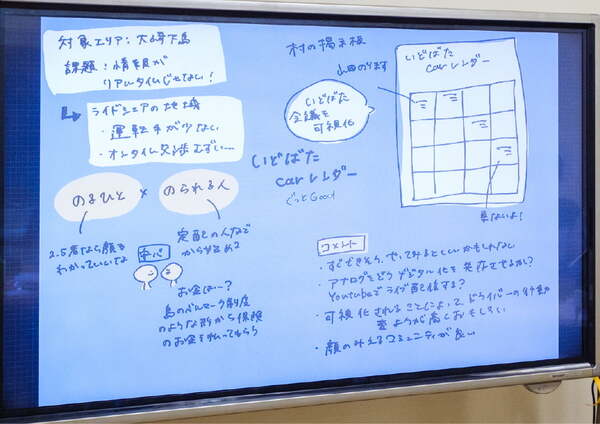 対象エリア：大崎下島
課題：情報が
リアルタイムじゃない！
ライドシェアの地場
・運転手が少ない
・オンタイム交渉むずい…
のるひと × のられる人
2.5者なら顔も
わかっていいな
定配の人など
からはじめる？
お金は…？
島のベルマーク制度
のような形から保険
のお金を払ってもらう
村の掲示板
山田のります
いどばた
会議を
可視化
いどばた
carレンダー
ぐっとGood
いどばた
carレンダー
乗ないよ！
コメント
・すぐできそう、やってみるといいかもしれない
・アナログをどうデジタル化を共存させるか？
Youtubeでライブ配信する？
・可視化されることによって、ドライバーの行動
変ようが高しおもしろい
・顔のみえるコミュニティが良い